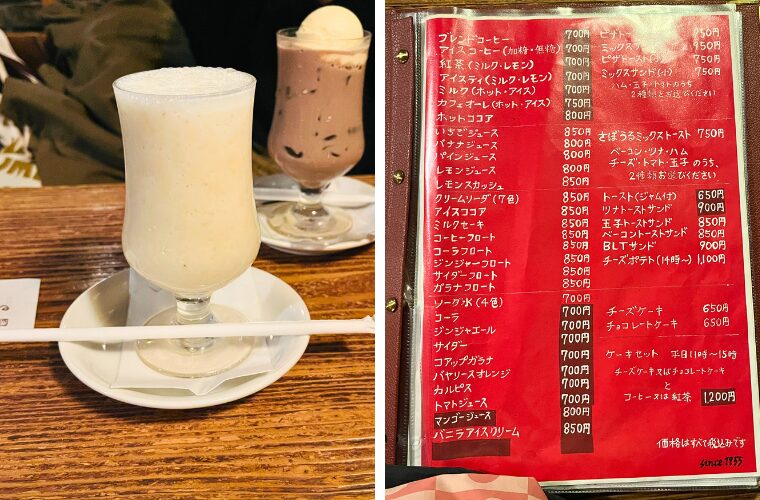 ブレンドコーヒー 700円
アイスコーヒー(加糖・無糖) 700円
紅茶(ミルク・レモン) 700円
アイスティ(ミルク・レモン) 700円
ミルク(ホット・アイス) 700円
カフェオーレ(ホット・アイス) 750円
ホットココア 800円
いちごジュース 850円
バナナジュース 800円
パインジュース 800円
レモンジュース 800円
レモンスカッシュ 850円
クリームソーダ(7色) 850円
アイスココア 850円
ミルクセーキ 850円
コーヒーフロート 850円
コーラフロート 850円
ジンジャーフロート 850円
サイダーフロート 850円
ガラナフロート 850円
ソーダ水(4色) 700円
コーラ 700円
ジンジャエール 700円
サイダー 700円
コアップガラナ 700円
バヤリースオレンジ 700円
カルピス 700円
トマトジュース 700円
マンゴージュース 800円
バニラアイスクリーム 850円
ピザトー 750円
ミックスサ 950円
ピザトースト 750円
ミックスサンド(小) 750円
ハム・玉子・トマトのうち
2種類お選びください
さぼうるミックストースト 750円
ベーコン・ツナ・ハム
チーズ・トマト・玉子のうち、
2種類お選びください
トースト(ジャム付) 650円
ツナトーストサンド 900円
玉子トーストサンド 850円
ベーコントーストサンド 850円
BLTサンド 900円
チーズポテト(14時〜) 1,100円
チーズケーキ 650円
チョコレートケーキ 650円
ケーキセット 平日11時〜15時
チーズケーキ又はチョコレートケーキ
と
コーヒー又は紅茶 1,200円
価格はすべて税込みです
since 1955